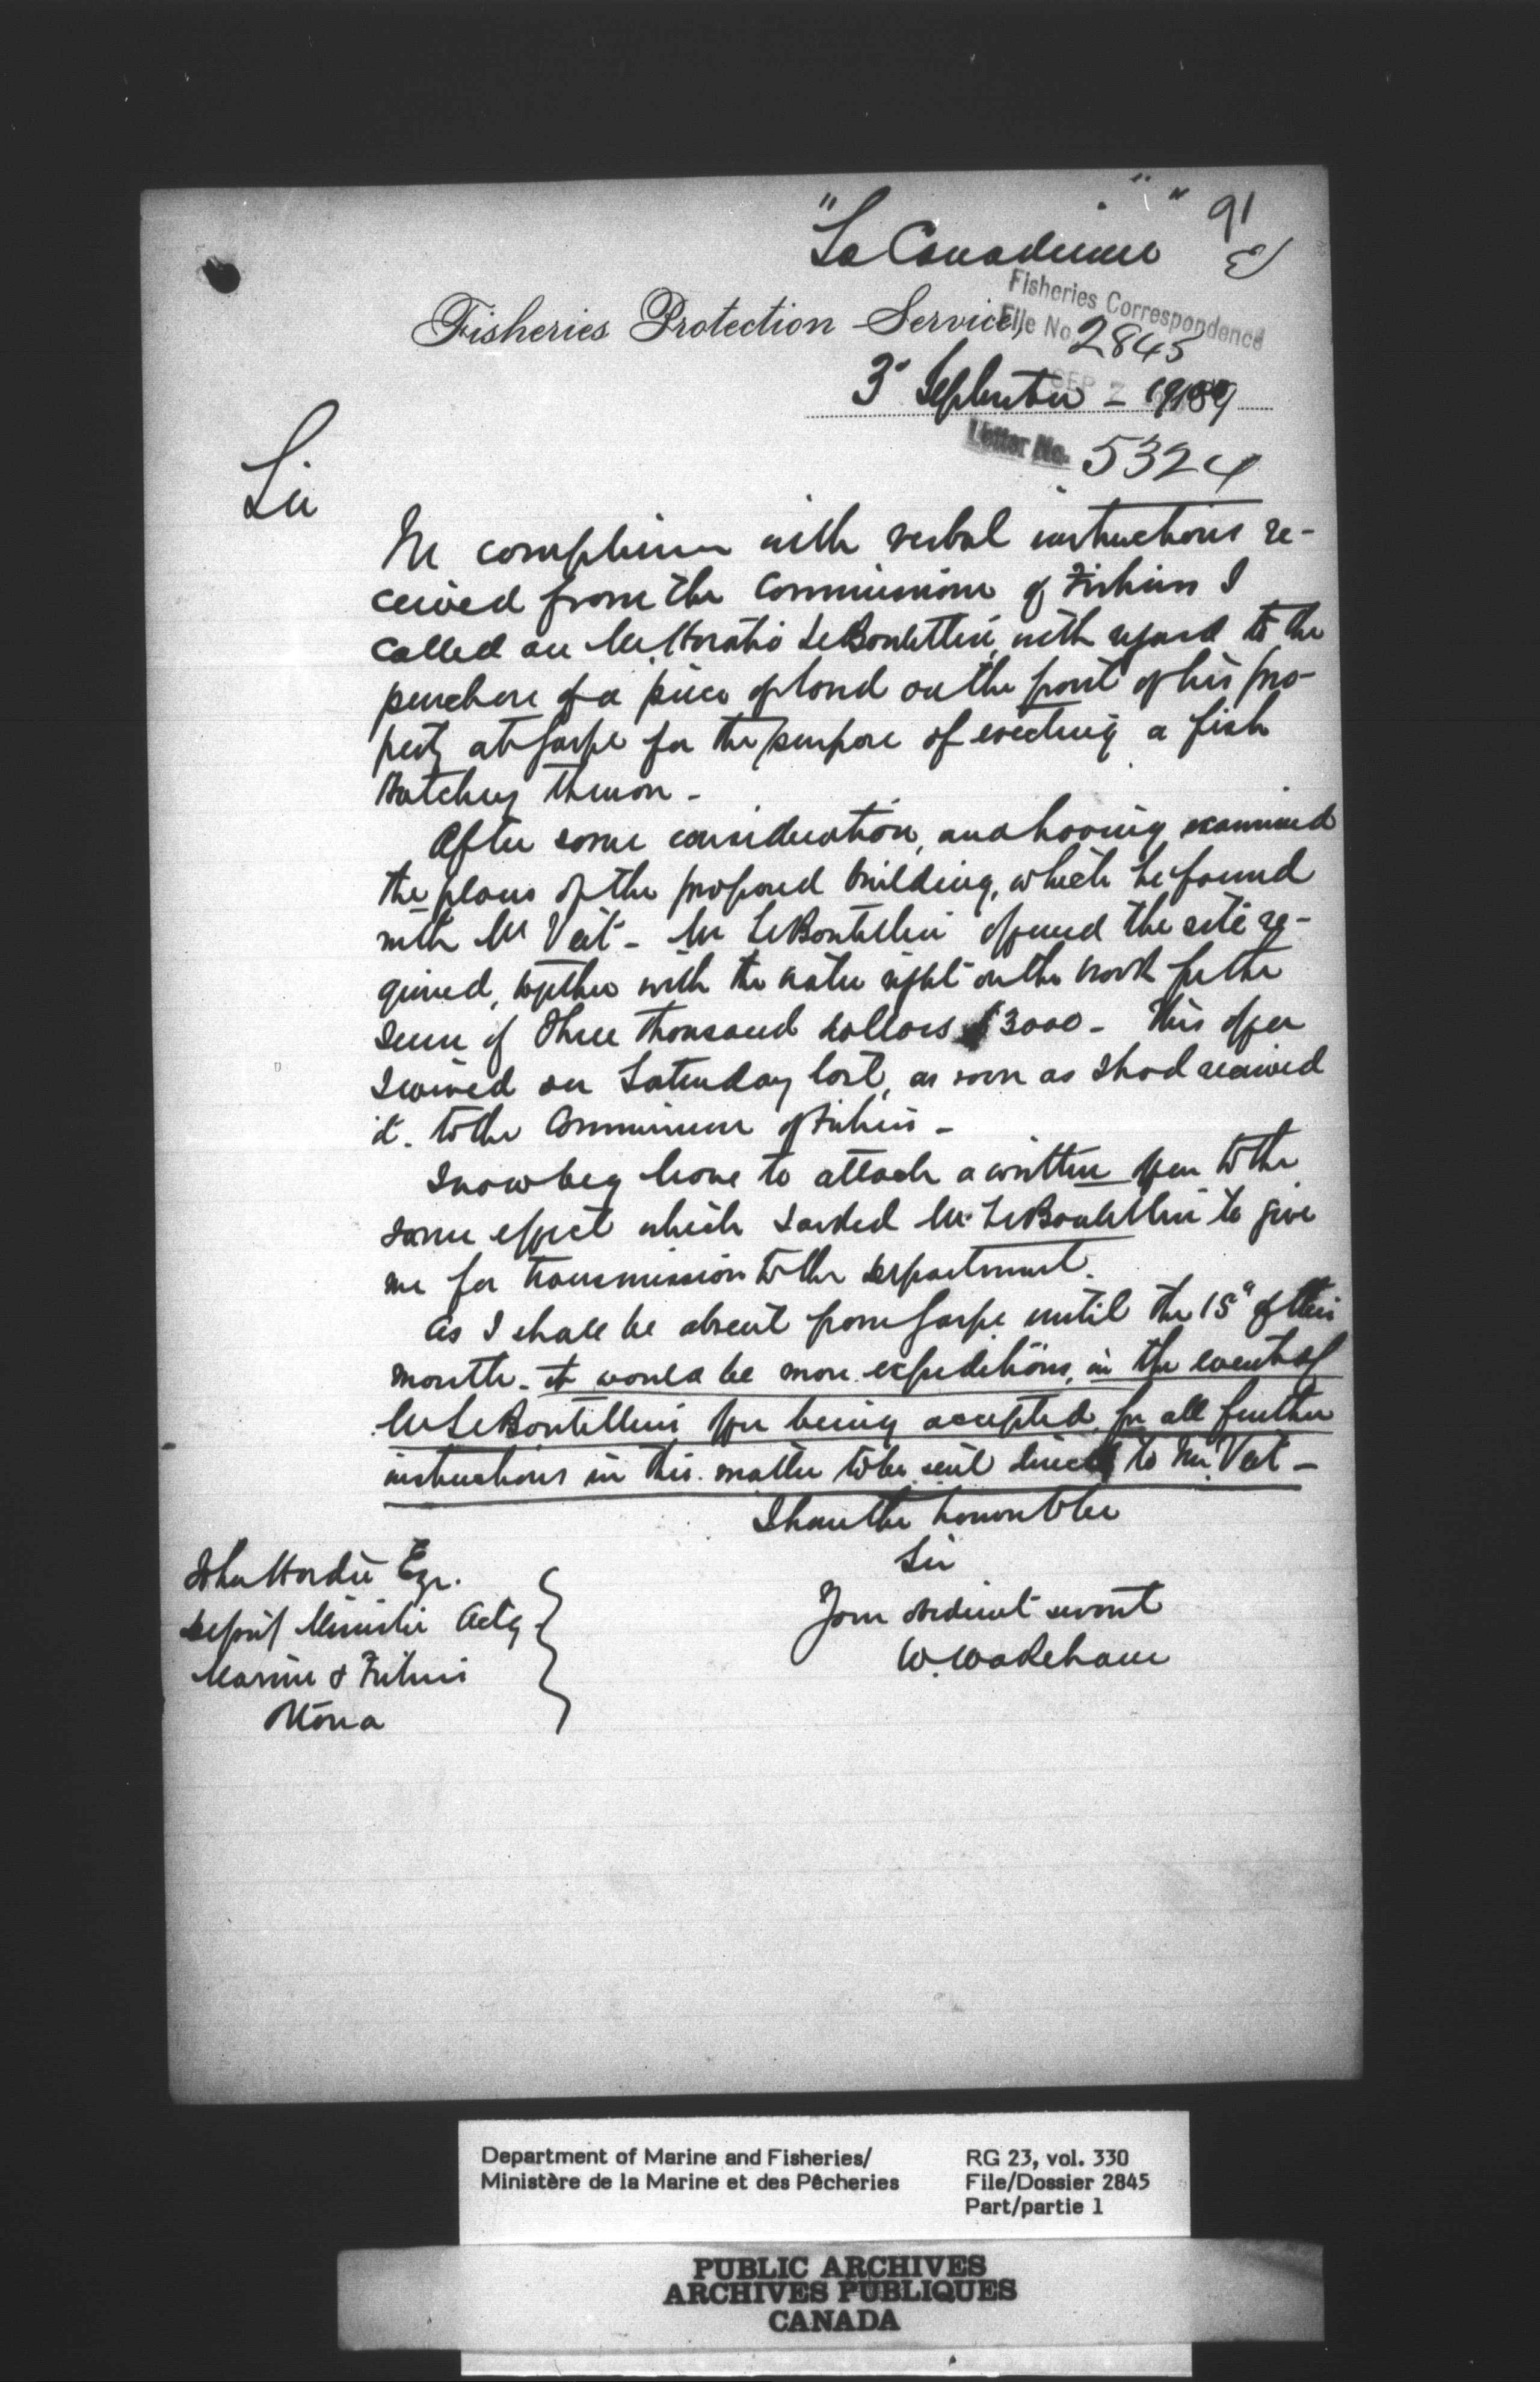 "La Canadienne" 91
Fisheries Correspondence
Fisheries Protection Service, File No. 2845
3d September - 189
Letter No. 5324
Sir
In compliance with verbal instructions re-
ceived from the Commissioner of Fisheries I
called on Mr. Horatio LeBoutillier, with regard to the
purchase of a piece of land on the front of his pro-
perty at Gaspe for the purpose of erecting a fish
Hatchery thereon -
After some consideration, and having examined
the plans of the proposed building, which he found
with Mr Veit - Mr LeBoutillier offered the site re-
quired, together with the water right on the brook for the
sum of Three thousand dollars $3000 - This offer
I wired on Saturday last, as soon as I had received
it. to the Commissioner of Fisheries -
I now beg leave to attach a written offer to the
same effect which I asked Mr. LeBoutillier to give
me for transmission to the department.
As I shall be absent from Gaspe until the 15" of this
month - it would be more expeditious, in the event of
Mr LeBoutilliers offer being accepted, for all further
instructions in this matter to be sent direct to Mr. Veit -
I have the honour to be
Sir
Your obedient servant
W. Wakeham
John Hardie Esqr.
Deputy Minister Actg
Marine & Fisheries
Ottawa
Department of Marine and Fisheries/ RG 23, vol. 330
Ministère de la Marine et des Pêcheries File/Dossier 2845
Part/partie 1
PUBLIC ARCHIVES
ARCHIVES PUBLIQUES
CANADA